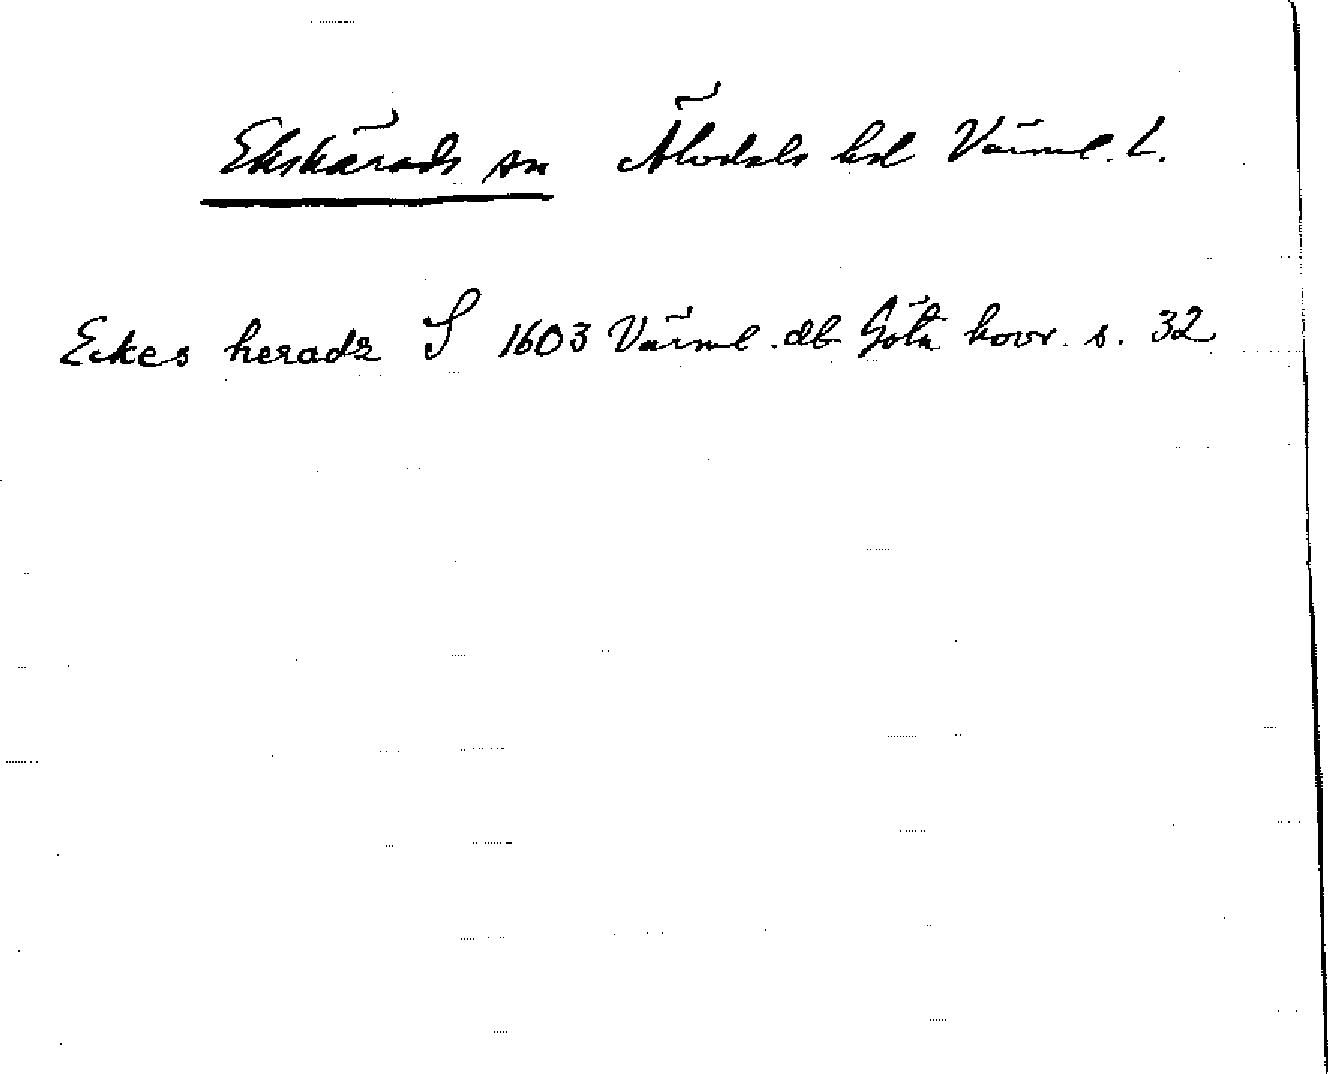 Ekshärads sn Älvdals hd Värml. l.
Eckes heradz S 1603 Värml. db Göta hovr. s. 32